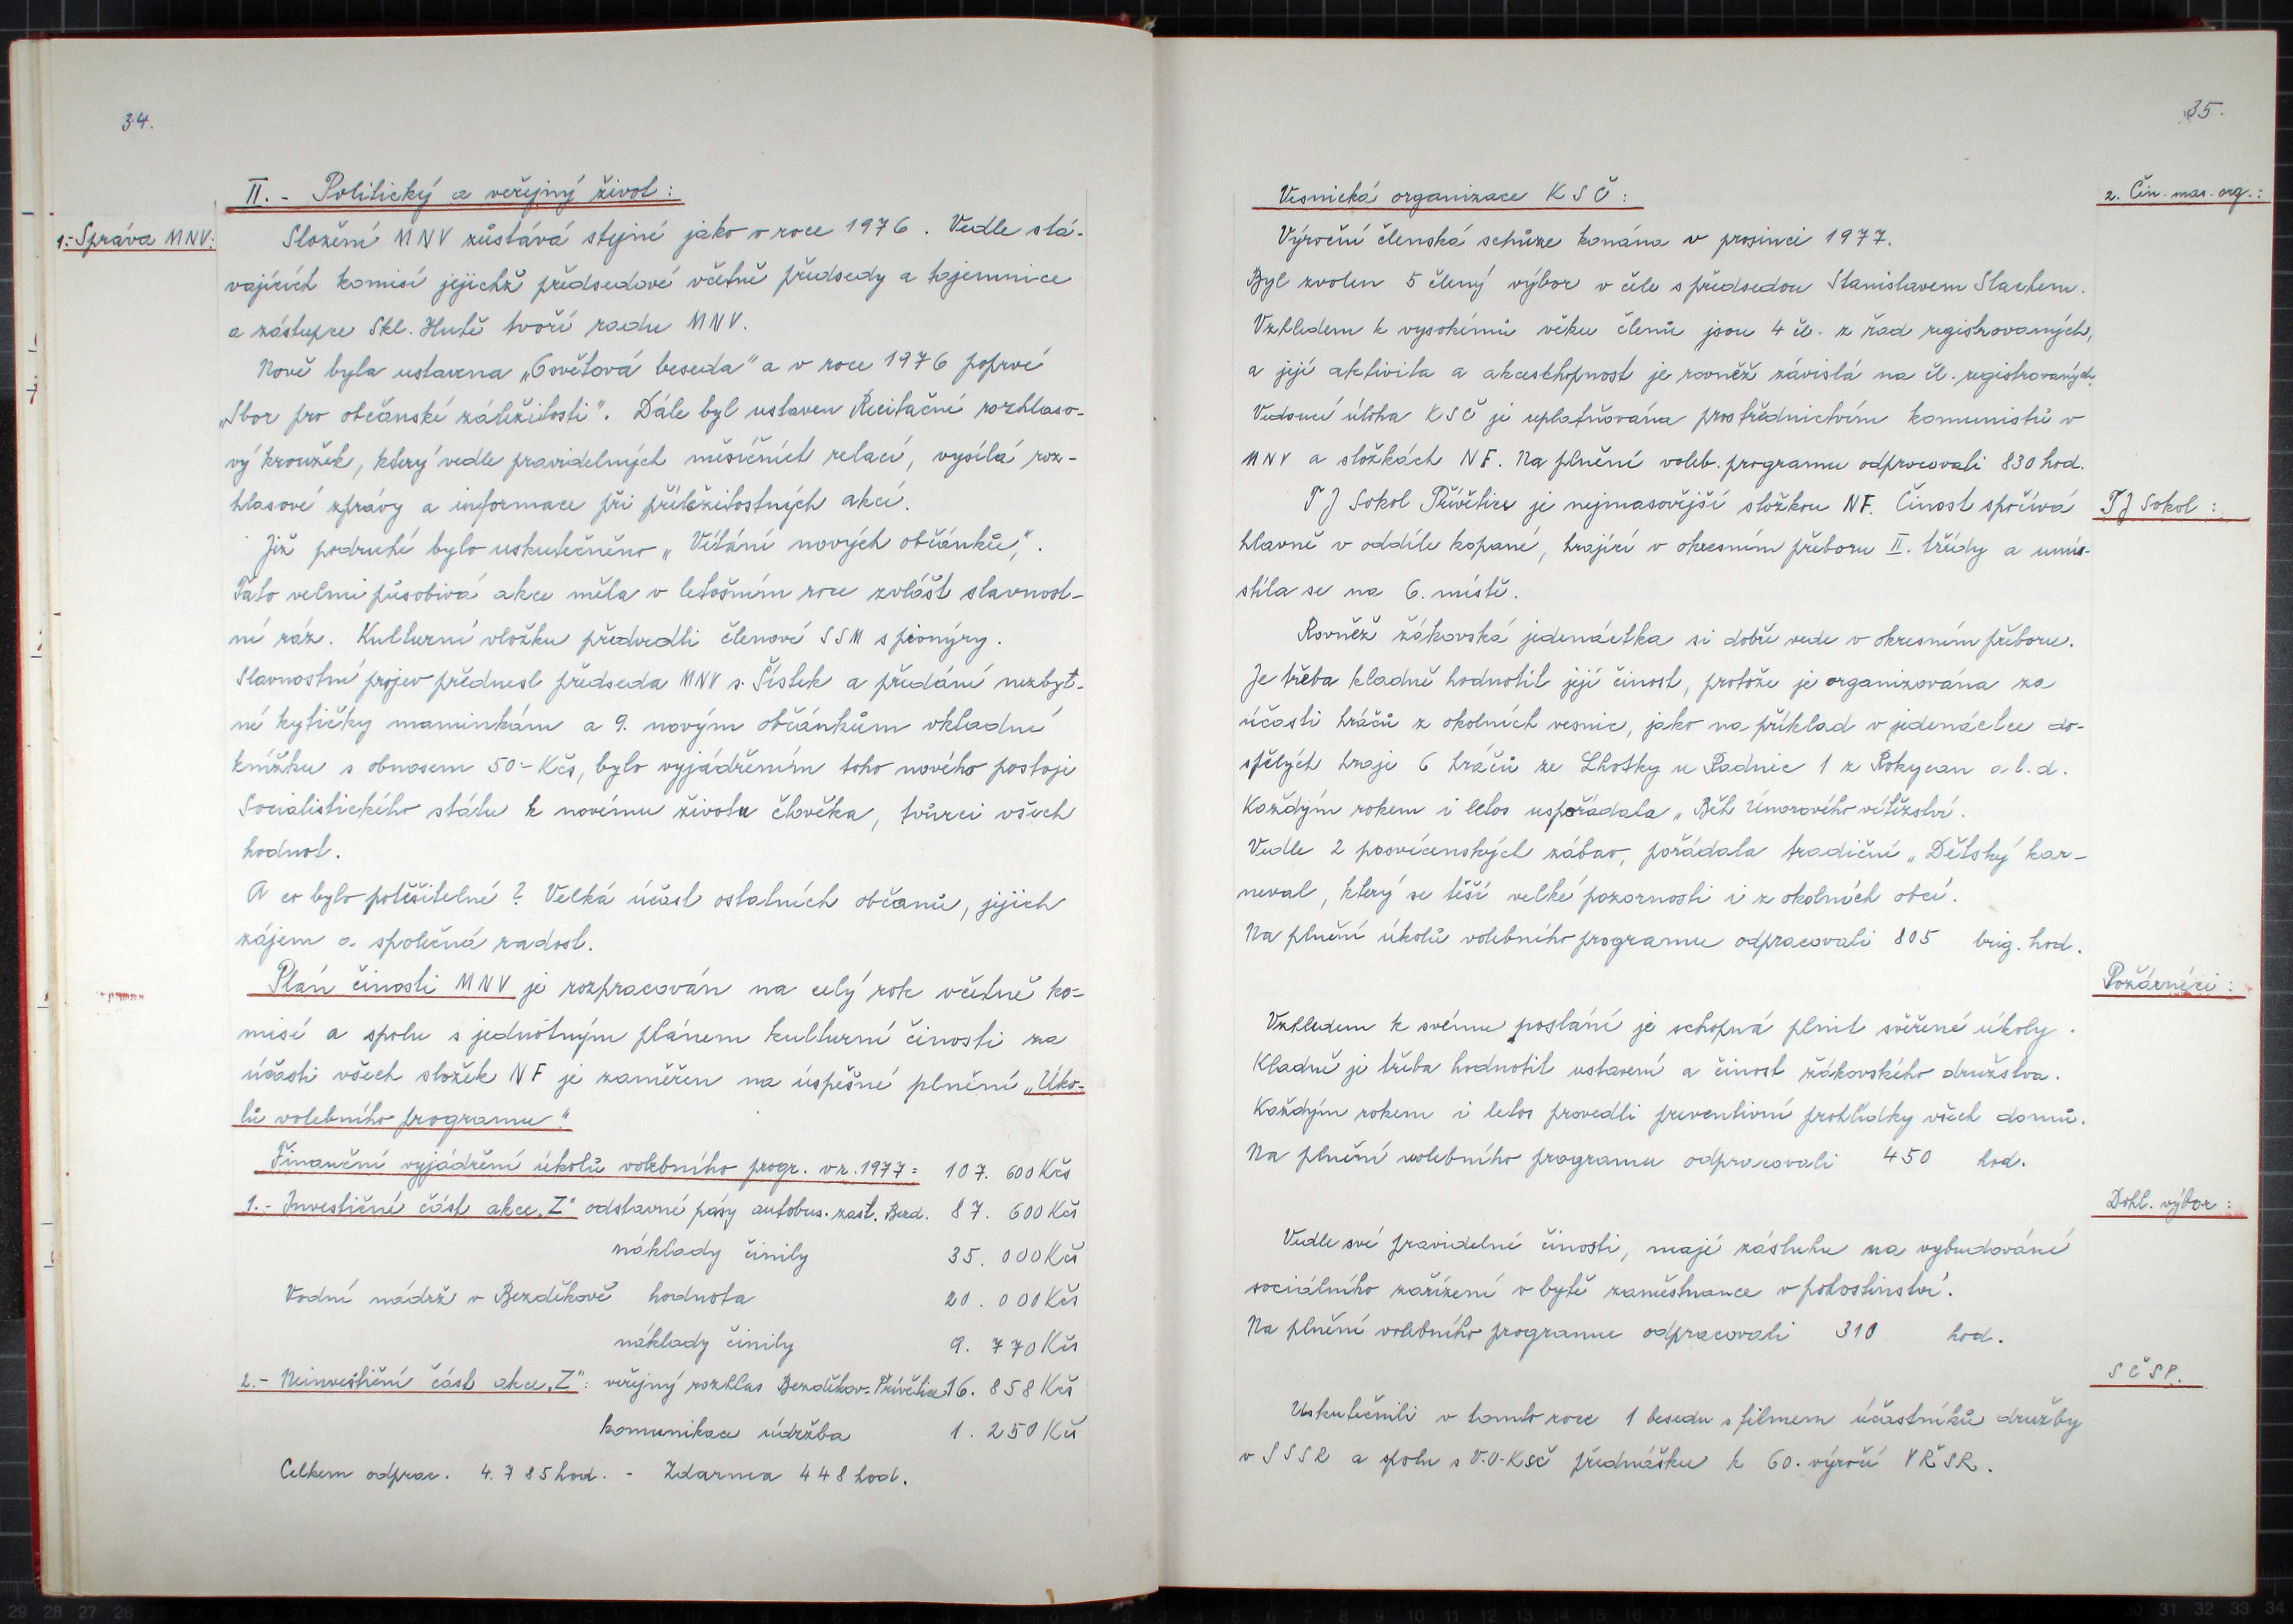 34.
II. - Politický a veřejný život:
1.- Správa MNV:
Složení MNV zůstává stejné jako v roce 1976. Vedle stá-
vajících komisí jejichž předsedové včetně předsedy a tajemnice
a zástupce Skl. Hutě tvoří radu MNV.
Nově byla ustavena „Osvětová beseda" a v roce 1976 poprvé
„Sbor pro občanské záležitosti". Dále byl ustaven Recitační rozhlaso-
vý kroužek, který vedle pravidelných měsíčních relací, vysílá roz-
hlasové zprávy a informace při příležitostných akcí.
Již podruhé bylo uskutečněno „Vítání nových občánků„.
Tato velmi působivá akce měla v letošním roce zvlášt slavnost-
ní ráz. Kulturní vložku předvedli členové SSM s pionýry.
Slavnostní projev přednesl předseda MNV s. Šístek a předání nezbyt-
né kytičky maminkám a 9. novým občánkům vkladní
knížku s obnosem 50.- Kčs, bylo vyjádřením toho nového postoje
Socialistického státu k novému životu člověka, tvůrci všech
hodnot.
A co bylo potěšitelné? Velká účast ostatních občanů, jejich
zájem a společná radost.
Plán činosti MNV je rozpracován na celý rok včetně ko-
misí a spolu s jednotným plánem kulturní činosti za
účasti všech složek NF je zaměřen na úspěšné plnění „Úko-
lů volebního programu".
Finanční vyjádření úkolů volebního progr. v r. 1977 = 107.600 Kčs
1.- Investiční část akce „Z" odstavné pásy autobus. zast. Bezd. 87.600 Kčs
náklady činily 35.000 Kčs
Vodní nádrž v Bezděkově hodnota 20.000 Kčs
náklady činily 9.770 Kčs
2.- Neinvestiční část akce „Z": veřejný rozhlas Bezděkov-Přívětice 16.858 Kčs
komunikace údržba 1.250 Kčs
Celkem odprac. 4.785 hod. - Zdarma 448 hod.
35.
Vesnická organizace KSČ:
2. Čin. mas. org.:
Výroční členská schůze konána v prosinci 1977.
Byl zvolen 5 člený výbor v čele s předsedou Stanislavem Slachem.
Vzhledem k vysokému věku členů jsou 4 čl. z řad registrovaných,
a její aktivita a akceschopnost je rovněž závislá na čl. registrovaných.
Vedoucí úloha KSČ je uplatňována prostřednictvím komunistů v
MNV a složkách NF. Na plnění voleb. programu odpracovali 830 hod.
TJ Sokol Přívětice je nejmasovější složkou NF. Činost spočívá
TJ Sokol:
hlavně v oddíle kopané, hrající v okresním přeboru II. třídy a umís-
stila se na 6. místě.
Rovněž žákovská jedenáctka si dobře vede v okresním přeboru.
Je třeba kladně hodnotit její činost, protože je organizována za
účasti hráčů z okolních vesnic, jako na příklad v jedenáctce do-
spělých hraje 6 hráčů ze Lhotky u Radnic 1 z Rokycan a t. d.
Každým rokem i letos uspořádala „Běh Únorového vítězství.
Vedle 2 posvícenských zábav, pořádala tradiční „Dětský kar-
neval, který se těší velké pozornosti i z okolních obcí.
Na plnění úkolů volebního programu odpracovali 805 brig. hod.
Požárníci:
Vzhledem k svému poslání je schopná plnit svěřené úkoly.
Kladně je třeba hodnotit ustavení a činost žákovského družstva.
Každým rokem i letos provedli preventivní prohlídky všech domů.
Na plnění volebního programu odpracovali 450 hod.
Dohl. výbor:
Vedle své pravidelné činosti, mají zásluhu na vybudování
sociálního zařízení v bytě zaměstnance v pohostinství.
Na plnění volebního programu odpracovali 310 hod.
SČSP.
Uskutečnili v tomto roce 1 besedu s filmem účastníků družby
v SSSR a spolu s V.O.KSČ přednášku k 60. výročí VŘSR.